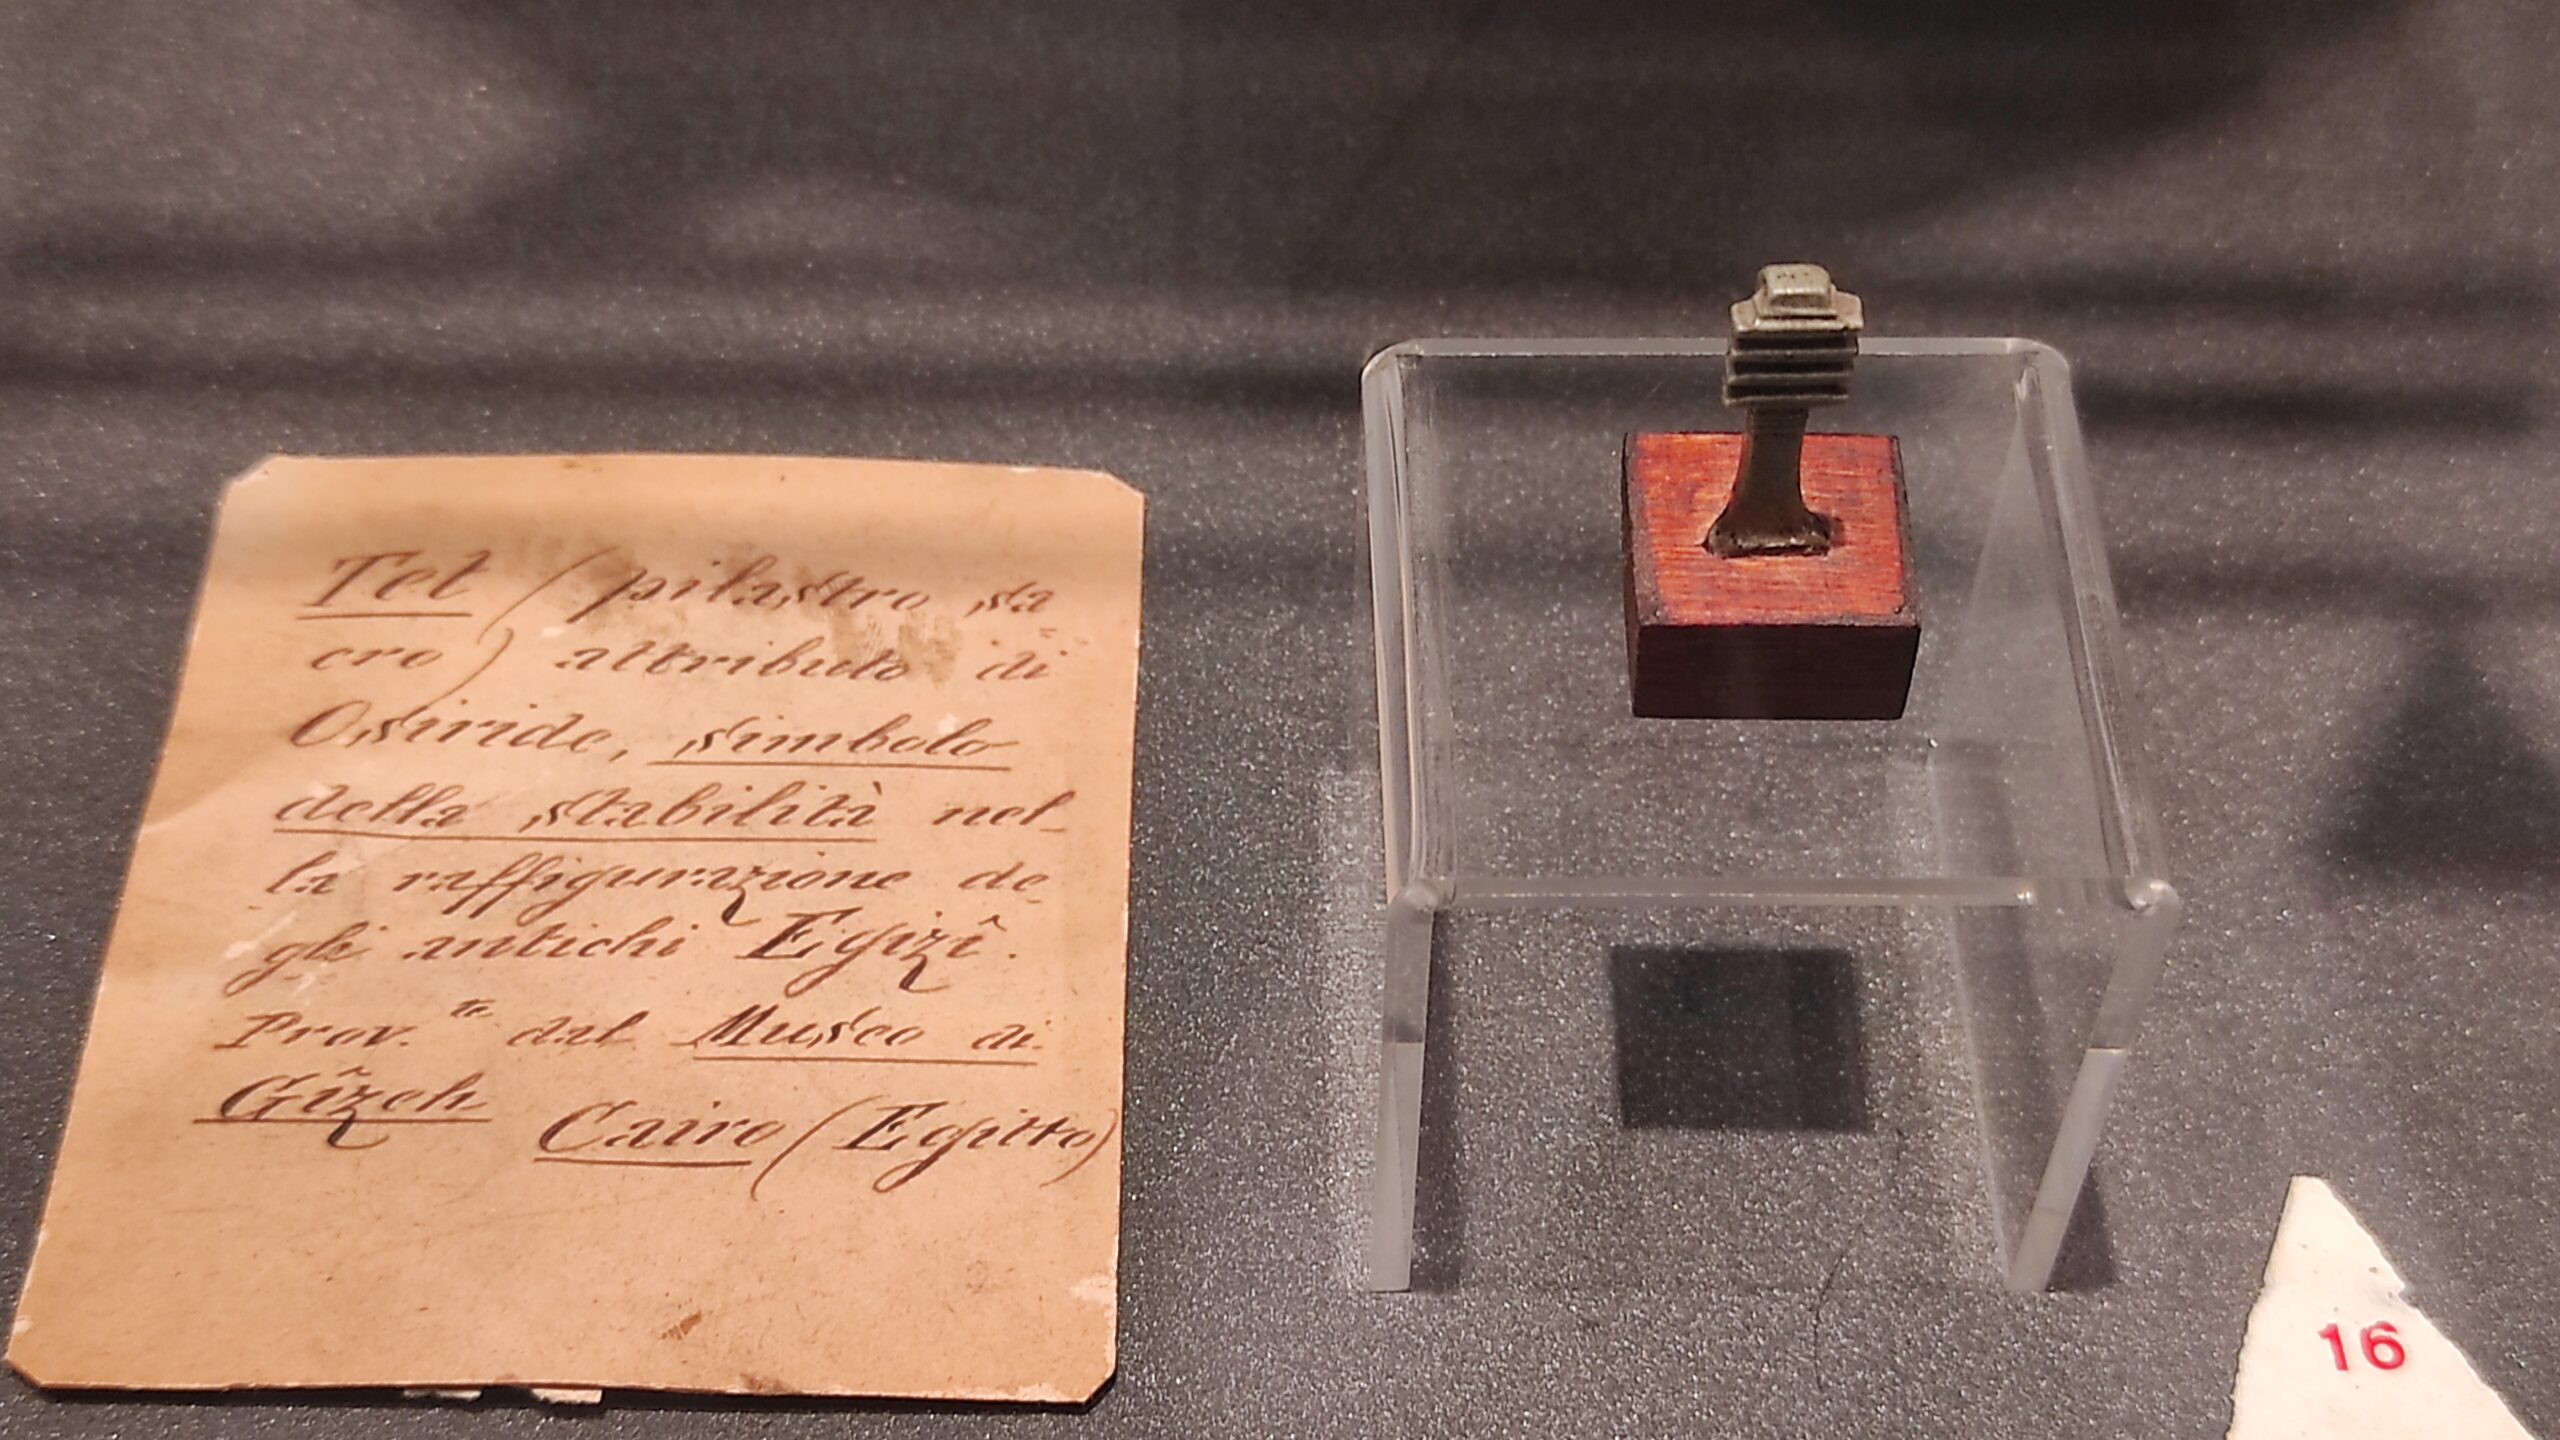 Tet (pilastro sa=
cro) attributo di
Osiride, simbolo
della stabilità nel-
la raffigurazione de-
gli antichi Egizî.
Prov.te dal Museo di
Gîzeh
Cairo (Egitto)
16